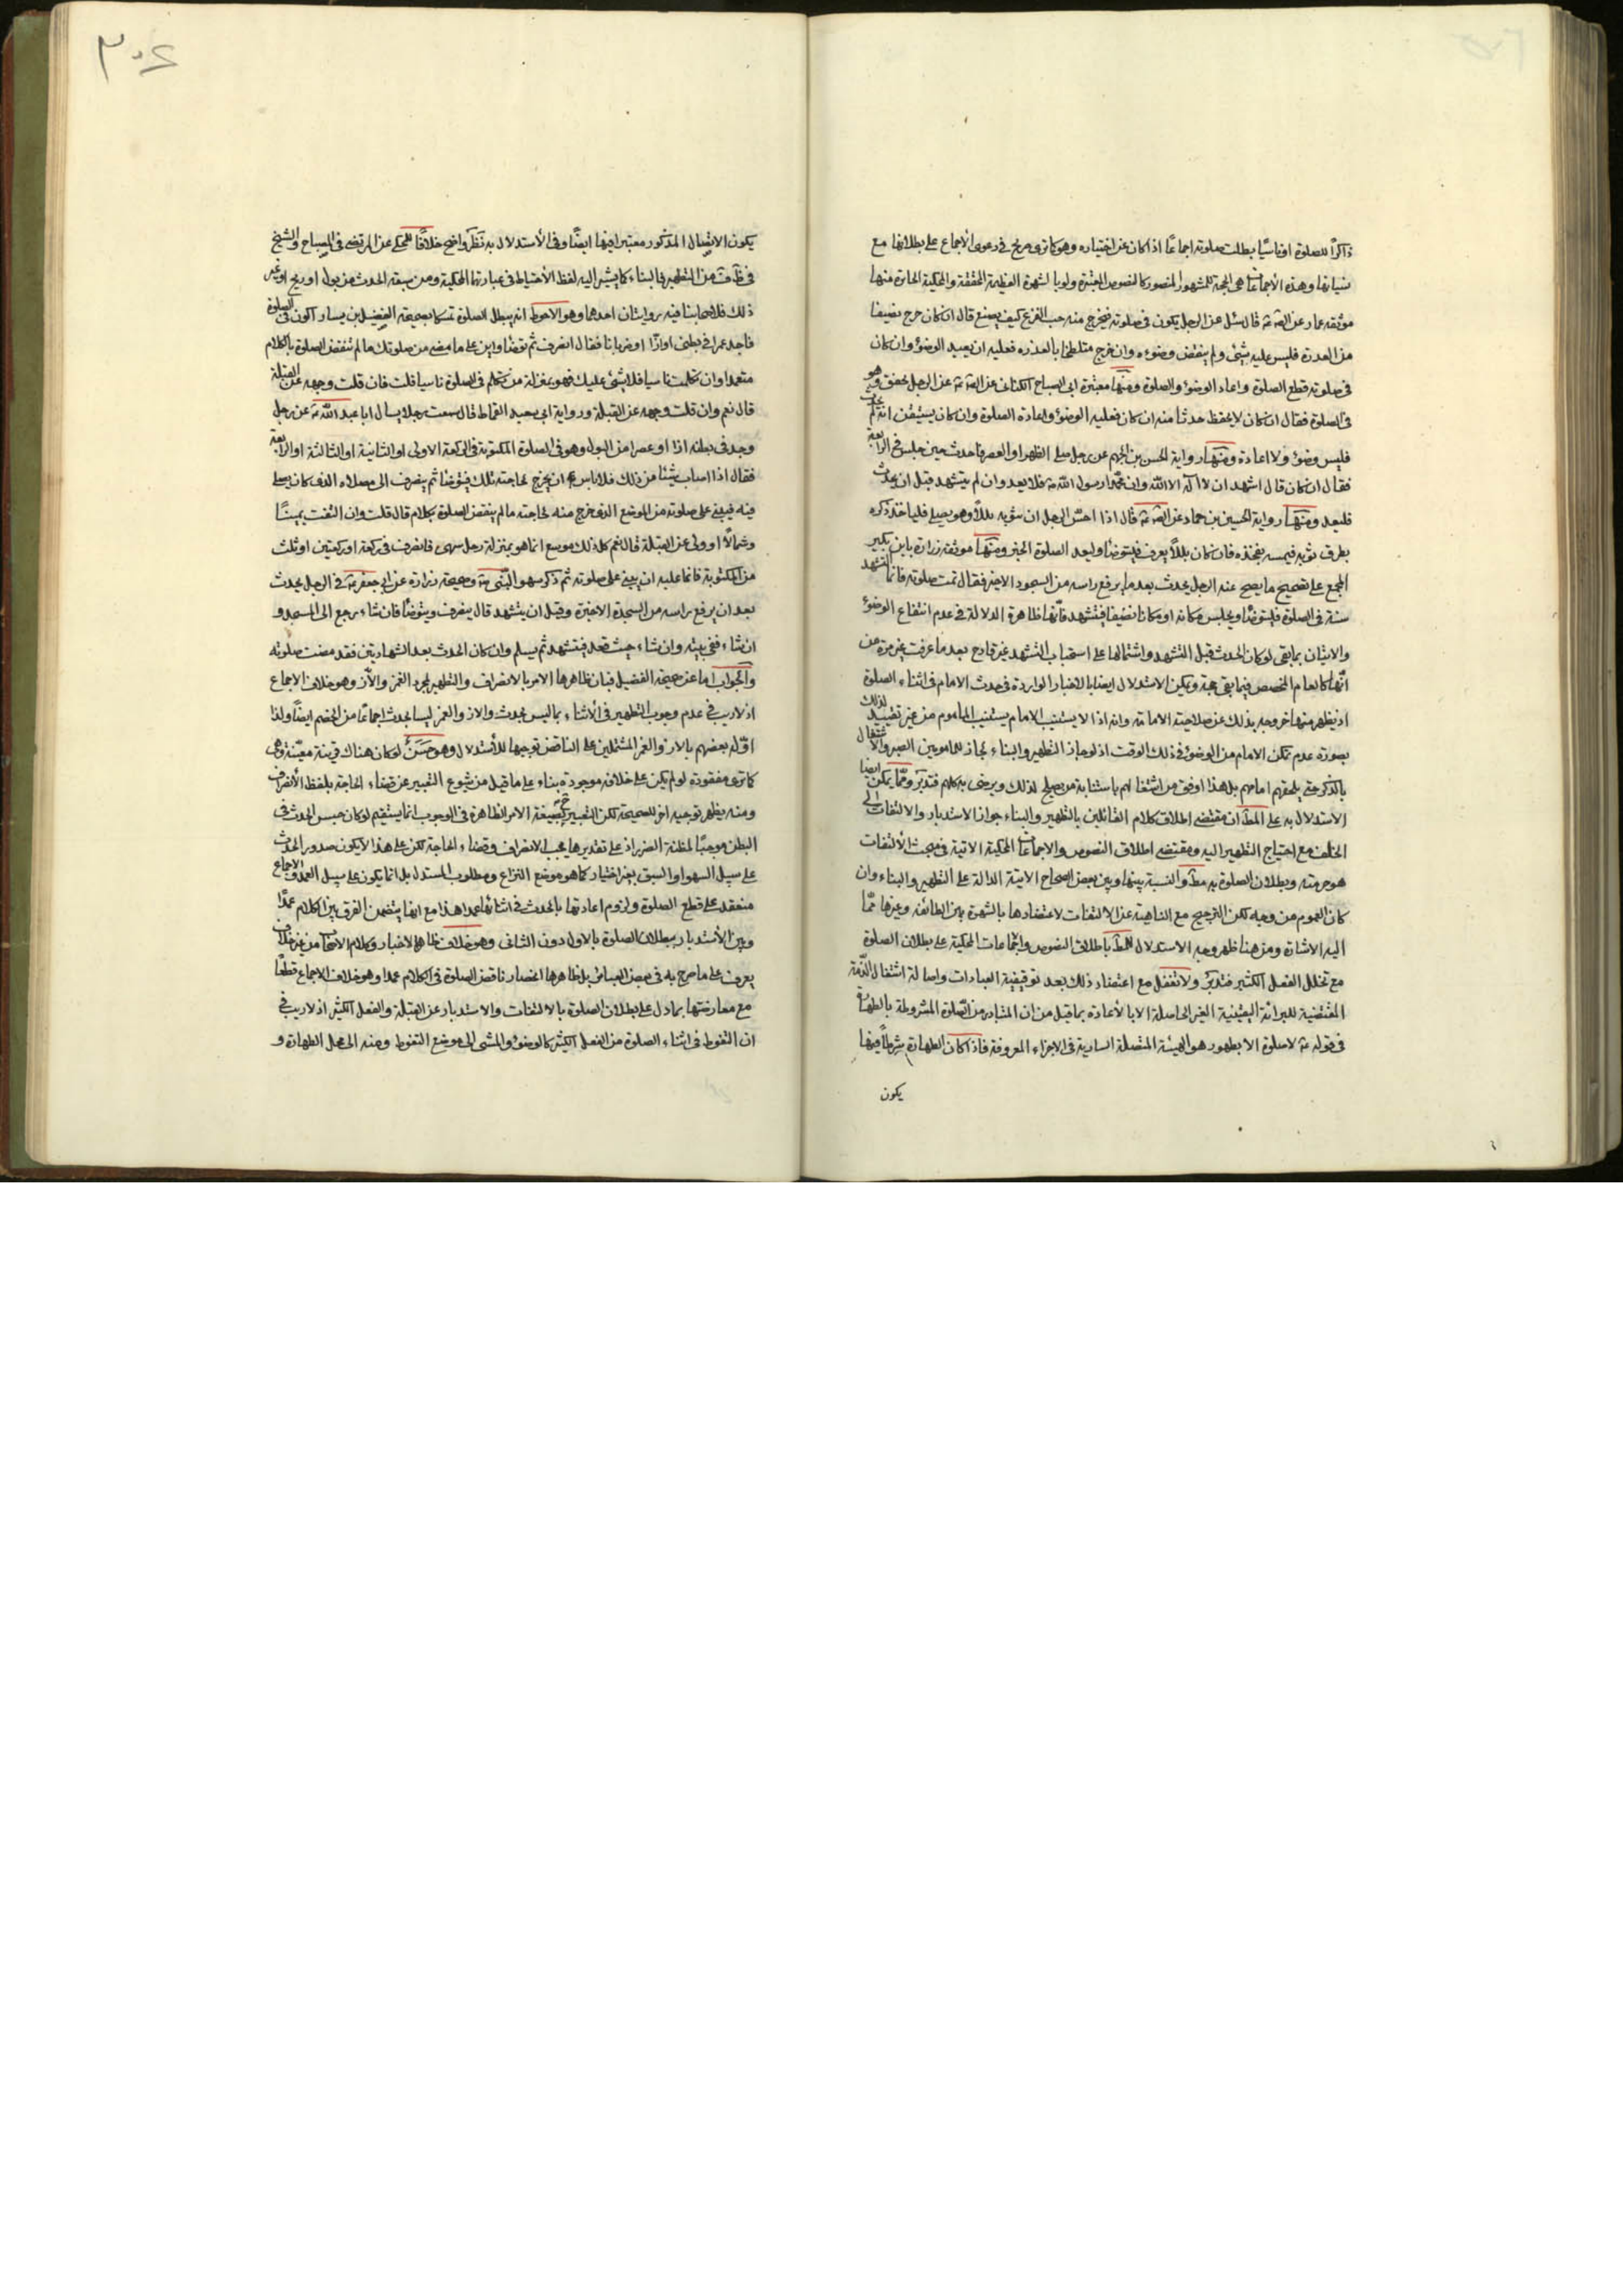 ذاكرًا للصلوة اوناسيًا بطلت صلوته اجماعًا اذا كان عن اختياره وهو كما ترى صريح في دعوى الاجماع على بطلانها مع
نسيانها وهذه الأجماعات هي الحجة للمشهور المنصور كالنصوص المعتبرة ولو بالشهرة العظيمة المحققة والمحكية الحائزة منها
موثقه عمار عن الصه قال سئل عن الرجل يكون في صلوته فيخرج منه حب القرع كيف يصنع قال ان كان خرج نضيفا
من العدرة فليس عليه شئ ولم ينقض وضوءه وان خرج متلطخا بالعذره فعليه ان يعيد الوضوء وان كان
في صلوته قطع الصلوة واعاد الوضوء والصلوة ومنها معتبرة ابي الصباح الكناني عن الصه عن الرجل يخفق وهو
في الصلوة فقال ان كان لا يحفظ حدثا منه ان كان فعليه الوضوء واعادة الصلوة وان كان يستيقن انه لم يحدث
فليس وضوء ولا اعادة ومنها رواية الحسن بن الجهم عن رجل صلى الظهر او العصر فاحدث حين جلس في الرابعة
فقال ان كان قال اشهد ان لا اله الا الله وان محمدا رسول الله فلا يعد وان لم يتشهد قبل ان يحدث
فليعد ومنها رواية الحسين بن حماد عن الصه قال اذا احس الرجل ان بثوبه بللا وهو يصلي فلياخذ ذكره
بطرف ثوبه فيمسه بفخذه فان كان بللا يعرف فليتوضا وليعد الصلوة الخبر ومنها موثقه زرارة بابن بكير
المجمع على تصحيح ما يصح عنه الرجل يحدث بعد ما يرفع راسه من السجود الاخير فقال تمت صلوته فانما التشهد
سنة في الصلوة فليتوضا ويجلس مكانه او مكانا نضيفا فيتشهد فانها ظاهرة الدلالة في عدم انتفاع الوضوء
والاتيان بما بقي لو كان الحدث قبل التشهد واشتمالها على استحباب التشهد غير قادح بعد ما عرفت غير مرة من
انها كالعام المخصص فيما بقي حجة ويمكن الاستدلال ايضا بالاخبار الواردة في حدث الامام في اثناء الصلوة
اذ يظهر منها خروجه بذلك عن صلاحية الامامة وانه اذا لا يستنيب الامام يستنيب الماموم من غير تقييد لذلك
بصورة عدم تمكن الامام من الوضوء في ذلك الوقت اذ لو جاز التطهير والبناء لجاز للمامومين الصبر والاشتغال
بالذكر حتى يلحقهم امامهم بل هذا اوفق من اشتغالهم باستنابة من يصلح لذلك ويرضى به كلهم فتدبر ومما يمكن ايضا
الاستدلال به على المط ان مقتضى اطلاق كلام القائلين بالتطهير والبناء جواز الاستدبار والالتفات الى
الخلف مع احتياج التطهير اليه ومقتضى اطلاق النصوص والاجماعات المحكية الاتية في مبحث الألتفات
هو حرمته وبطلان الصلوة به مط والنسبة بينها وبين بعض الصحاح الاتية الدالة على التطهير والبناء وان
كان العموم من وجه لكن الترجيح مع الناهية عن الالتفات لاعتضادها بالشهرة بين الطائفه وغيرها مما
اليه الاشارة ومن هنا ظهر وجه الاستدلال للمط باطلاق النصوص والاجماعات المحكية على بطلان الصلوة
مع تخلل الفعل الكثير فتدبر ولا تغفل مع اعتضاد ذلك بعد توقيفية العبادات واصالة اشتغال الذمة
المقتضية للبرائة اليقينية الغير الحاصلة الا بالأعادة بما قيل من ان المتبادر من الصلوة المشروطة بالطهارة
في قوله لا صلوة الا بطهور هو الهيئة المتصلة السارية في الاجزاء المعروفة فاذا كان الطهارة شرطا فيها
يكون
٣٠٤
يكون الاتصال المذكور معتبرا فيها ايضا وفي الأستدلال به نظر واضح خلافا للمحكي عن المرتضى في المصباح والشيخ
في ظ ف من التطهير في البناء كما يشير اليه لفظ الأحتياط في عبارتهما المحكية ومن سبقه الحدث من بول او ريح او غير
ذلك فلاصحابنا فيه روايتان احدهما وهو الاحوط انه يبطل الصلوة تمسكا بصحيحة الفضيل بن يسار اكون في الصلوة
فاجد غمزا في بطني او ازا او ضربانا فقال انصرف ثم توضا وابن على ما مضى من صلوتك ما لم تنقض الصلوة بالكلام
متعمدا وان تكلمت ناسيا فلا شئ عليك فهو بمنزلة من تكلم في الصلوة ناسيا قلت فان قلت وجهه عن القبلة
قال نعم وان قلت وجهه عن القبلة ورواية ابي سعيد القماط قال سمعت رجلا يسال ابا عبد الله عن رجل
وجد في بطنه ازا او عصرا من البول وهو في الصلوة المكتوبة في الركعة الاولى او الثانية او الثالثة او الرابعة
فقال اذا اصاب شيئا من ذلك فلا باس ان يخرج لحاجته تلك فيتوضا ثم ينصرف الى مصلاه الذي كان يصلي
فيه فيبني على صلوته من الموضع الذي خرج منه لحاجته ما لم ينقض الصلوة بكلام قال قلت وان التفت يمينًا
وشمالًا او ولى عن القبلة قال نعم كل ذلك موسع انما هو بمنزلة رجل سهى فانصرف في ركعة او ركعتين او ثلث
من المكتوبة فانما عليه ان يبني على صلوته ثم ذكر سهو النبي وصحيحة زرارة عن ابي جعفر في الرجل يحدث
بعد ان يرفع راسه من السجدة الاخيرة وقبل ان يتشهد قال ينصرف ويتوضا فان شاء رجع الى المسجد و
ان شاء ففي بيته وان شاء حيث قعد فيتشهد ثم يسلم وان كان الحدث بعد الشهادتين فقد مضت صلوته
والجواب اما عن صحيحة الفضيل فبان ظاهرها الامر بالانصراف والتطهير لمجرد الغمز والاز وهو خلاف الاجماع
اذ لا ريب في عدم وجوب التطهير في الأثناء بما ليس بحدث والاز والغمز ليسا بحدث اجماعا من الخصم ايضا ولذا
اوله بعضهم بالاز والغمز المشتملين على الناقض توجيها للأستدلال وهو حسن لو كان هناك قرينة معينة وهي
كما ترى مفقودة لو لم يكن على خلافه موجودة بناء على ما قيل من شيوع التعبير عن قضاء الحاجة بلفظ الأنصراف
ومنه يظهر توجيه اخر للصحيحة لكن التعبير بصيغة الامر الظاهرة في الوجوب انما يستقيم لو كان حبس الحدث في
البطن موجبًا لمظنة الضرر اذ على تقديرها يجب الانصراف وقضاء الحاجة لكن على هذا لا يكون صدور الحدث
على سبيل السهو او السبق بغير اختيار كما هو موضع النزاع ومطلوب المستدل بل انما يكون على سبيل العمد والاجماع
منعقد على قطع الصلوة ولزوم اعادتها بالحدث في اثنائها عمدا هذا مع انها يتضمن الفرق بين الكلام عمدًا
وبين الأستدبار ببطلان الصلوة بالاول دون الثاني وهو خلاف ظاهر الاخبار وكلام الاصحاب من غير خلاف
يعرف على ما صرح به في بعض العبائر بل ظاهرها انحصار ناقض الصلوة في الكلام عمدا وهو خلاف الاجماع قطعًا
مع معارضتها بما دل على بطلان الصلوة بالالتفات والاستدبار عن القبلة والفعل الكثير اذ لا ريب في
ان التغوط في اثناء الصلوة من الفعل الكثير كالوضوء والمشي الى موضع التغوط ومنه الى محل الطهارة و